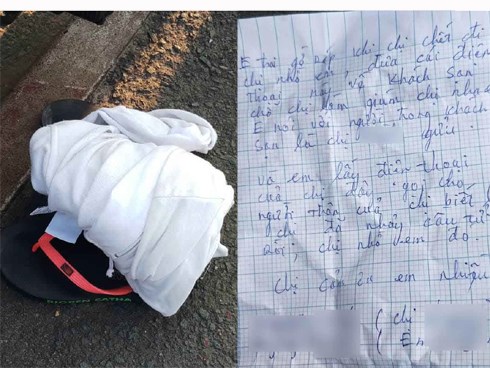 E trai khi chị chết đi
chị nhờ em đưa cái điện
thoại này về khách sạn
chỗ chị làm giùm chị nha
E nói với người trong khách
sạn là chị gửi.
và em lấy điện thoại
của chị đây gọi cho
người thân của chị biết
chị đã nhảy cầu tử
rồi, chị nhờ em đó.
Chị cảm ơn em nhiều
( chị
( Én